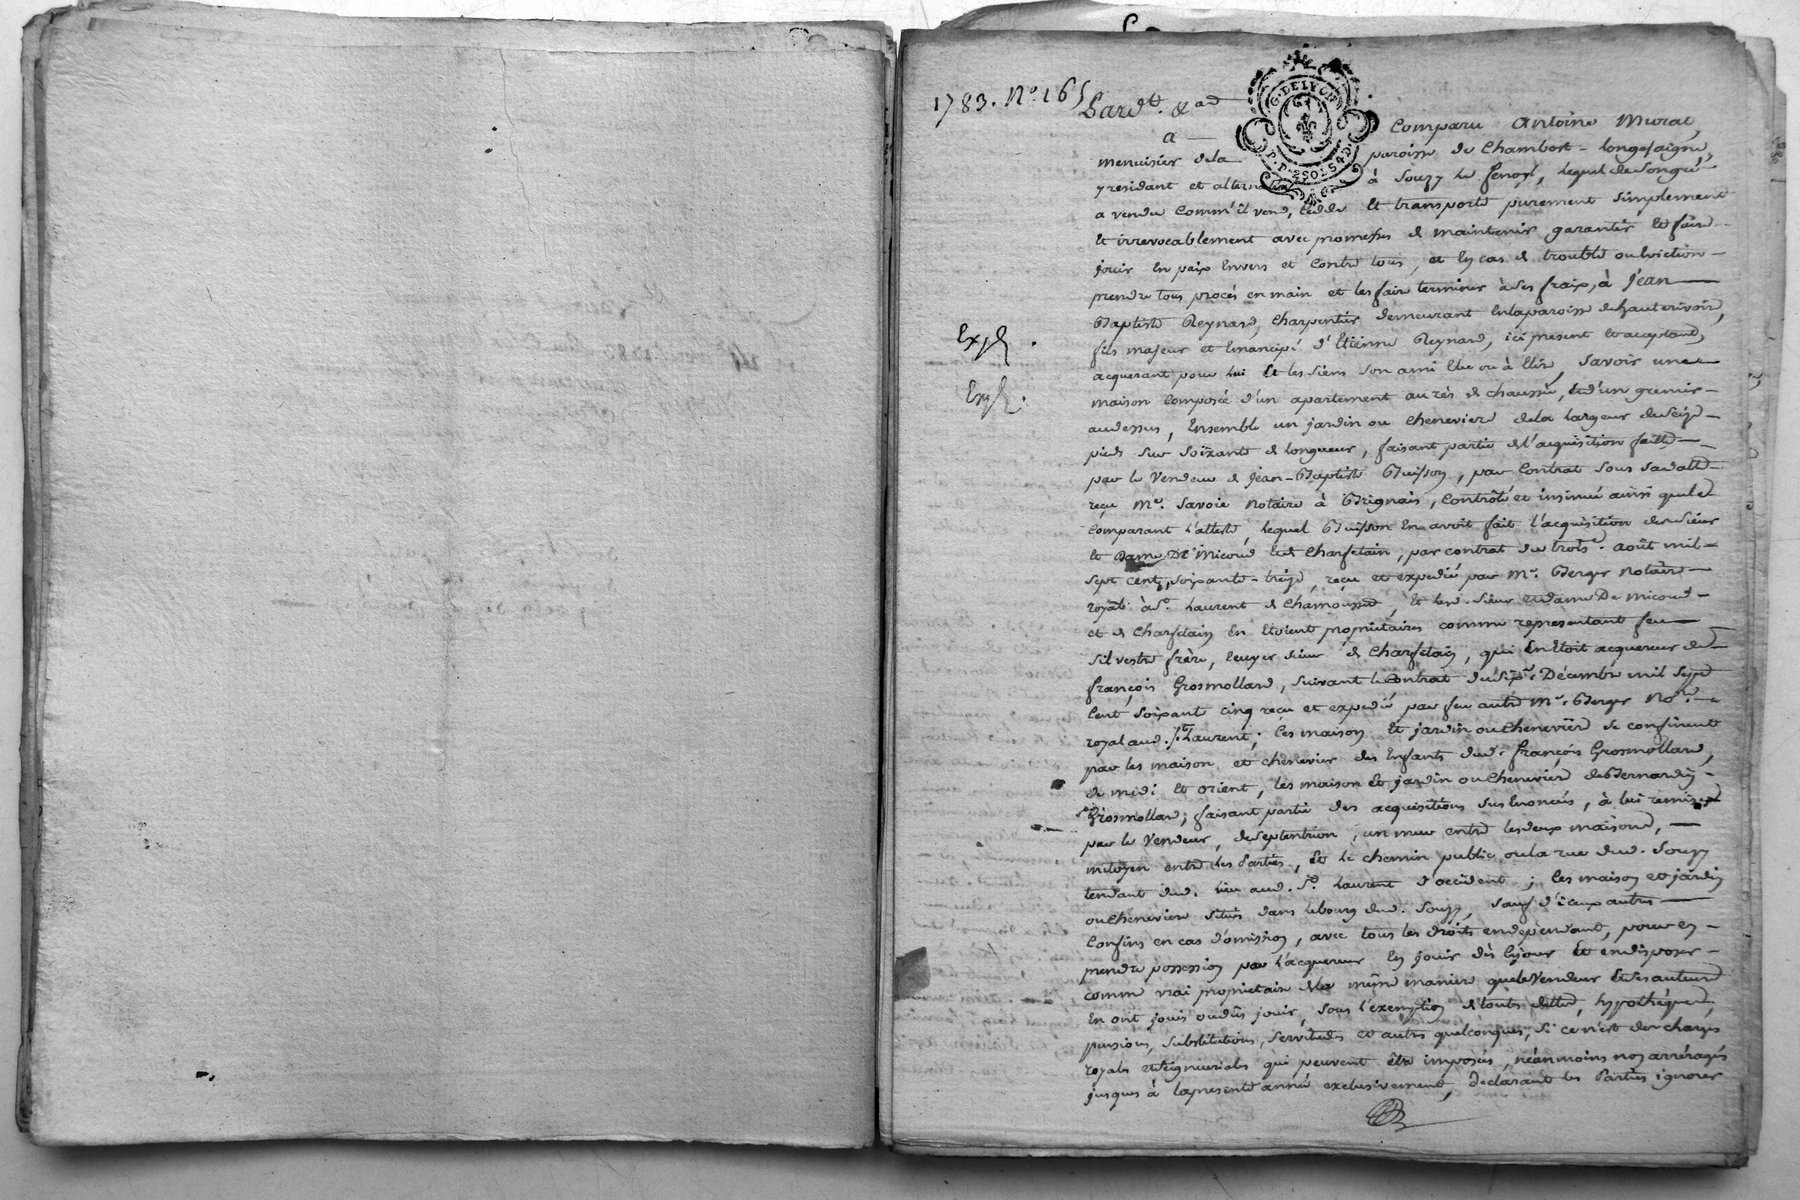 1783. N.º 165
Pard.t &a
G. DE LYON
P. P. 2 SOLS 4 D.
a comparu Antoine Murat,
menuisier de la paroisse de Chambost-longesaigne,
y residant et alternativ. à Souzy le fenoyl, lequel de son gré
a vendu comm'il vend, cedde et transporte purement simplement
et irrevocablement avec promesses de maintenir garantir et faire
jouir en paix envers et contre tous, et en cas de trouble ou eviction
prendre tous procés en main et les faire terminer à ses fraix, à Jean
Baptiste Reynard, charpentier demeurant en la paroisse de hauterivoire,
fils majeur et emancipé d'Etienne Reynard, ici present et acceptant,
Exp.
acquerant pour lui et les siens son ami elu ou à elire, savoir une
Exp.
maison composée d'un apartement au rés de chaussée, et d'un grenier
audessus, ensemble un jardin ou chenevier de la largeur de seize
pieds sur soixante de longueur, faisant partie de l'acquisition faitte
par le vendeur de Jean-Baptiste Buisson, par contrat sous sa datte
reçu M.e Savoie notaire à Brignais, controlé et insinué ainsi que le
comparant l'atteste, lequel Buisson en avoit fait l'acquisition des sieur
et Dame De Micoud et de Charfetain, par contrat du trois.e août mil
sept cent, soixante-treize, reçu et expedié par M.e Berger notaire
royal à S.t Laurent de Chamousset, et lesd. sieur et dame De micoud
et de Charfetain en etoient proprietaires comme representant feu
Silvestre frère, ecuyer sieur de Charfetain, qui en etoit acquereur de
françois Grosmollard, suivant le contrat du sept.e Décembre mil sept
cent soixant cinq reçu et expedié par feu autre M.e Berger No.re
royal aud. S.t Laurent; les maison et jardin ou chenevier se confinent
par les maison et chenevier des enfants dud. françois Grosmollard,
de midi et orient, les maison et jardin ou chenevier de Bernardin
Grosmollard; faisant partie des acquisitions susenoncés, à lui remises
par le vendeur, de septentrion, un mur entre les deux maisons,
mitoyen entre les Parties, et le chemin public ou la rue dud. Souzy
tendant dud. lieu aud. S.t Laurent d'occident; les maison et jardin
ou chenevier situés dans le bourg dud. Souzy, sauf d'iceux autres
confins en cas d'omission, avec tous les droits en dependant, pour en
prendre possession par l'acquereur en jouir dès ce jour et en disposer
comme vrai proprietaire de la même maniere que le vendeur et ses auteurs
en ont joui ou dû jouir, sous l'exemption de toutes dettes, hypothéques,
pensions, substitutions, servitudes et autres quelconques, si ce n'est des charges
royales et seigneuriales qui peuvent être imposés, néanmoins nos arrérages
jusques à la presente année exclusivement, declarant les Parties ignorer